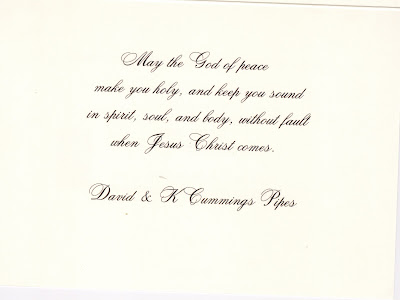 May the God of peace
make you holy, and keep you sound
in spirit, soul, and body, without fault
when Jesus Christ comes.
David & K Cummings Pipes